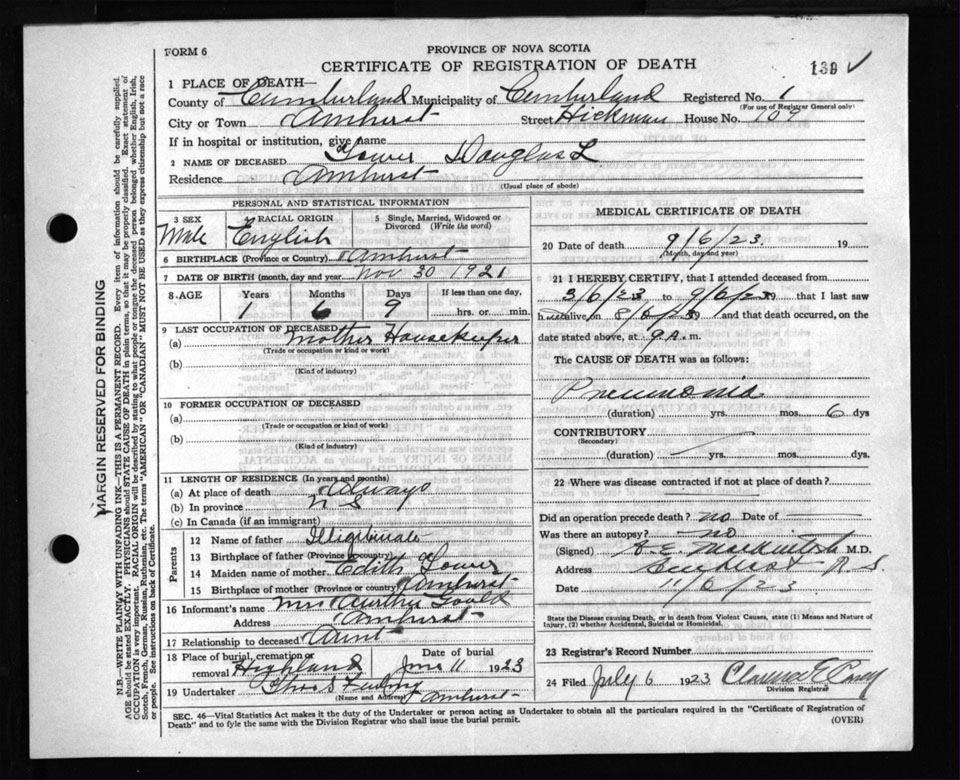 FORM 6
PROVINCE OF NOVA SCOTIA
CERTIFICATE OF REGISTRATION OF DEATH
139 ✓
1 PLACE OF DEATH—
County of Cumberland Municipality of Cumberland Registered No. 1
(For use of Registrar General only)
City or Town Amherst Street Hickman House No. 109
If in hospital or institution, give name
2 NAME OF DECEASED Douglas L
Residence Amherst
(Usual place of abode)
PERSONAL AND STATISTICAL INFORMATION
3 SEX Male
4 RACIAL ORIGIN English
5 Single, Married, Widowed or Divorced (Write the word)
6 BIRTHPLACE (Province or Country) Amherst
7 DATE OF BIRTH (month, day and year) Nov 30 1921
8 AGE Years Months Days If less than one day,
1 6 9 hrs. or min.
9 LAST OCCUPATION OF DECEASED
(a) Mother Housekeeper
(Trade or occupation or kind or work)
(b)
(Kind of industry)
10 FORMER OCCUPATION OF DECEASED
(a)
(Trade or occupation or kind or work)
(b)
(Kind of industry)
11 LENGTH OF RESIDENCE (In years and months)
(a) At place of death Always
(b) In province N S
(c) In Canada (if an immigrant)
Parents
12 Name of father Illigitimate
13 Birthplace of father (Province or country)
14 Maiden name of mother Edith
15 Birthplace of mother (Province or country) Amherst
16 Informant's name Mrs Gould
Address Amherst
17 Relationship to deceased Aunt
18 Place of burial, cremation or removal Highland
Date of burial June 11 1923
19 Undertaker
(Name and Address) Amherst
MEDICAL CERTIFICATE OF DEATH
20 Date of death 9/6/23 19
(Month, day and year)
21 I HEREBY CERTIFY, that I attended deceased from
3/6/23 to 9/6/23 19 that I last saw
h alive on 8/6/23 19 and that death occurred, on
date stated above, at 9 A. m.
The CAUSE OF DEATH was as follows:
Pneumonia
(duration) yrs. mos. 6 dys
CONTRIBUTORY
(Secondary)
(duration) yrs. mos. dys.
22 Where was disease contracted if not at place of death?
Did an operation precede death? no Date of
Was there an autopsy? no
(Signed) M.D.
Address Amherst N. S.
Date 11/6/23
State the Disease causing Death, or in death from Violent Causes, state (1) Means and Nature of Injury, (2) whether Accidental, Suicidal or Homicidal.
23 Registrar's Record Number
24 Filed July 6 1923
Division Registrar
SEC. 46—Vital Statistics Act makes it the duty of the Undertaker or person acting as Undertaker to obtain all the particulars required in the "Certificate of Registration of
Death" and to fyle the same with the Division Registrar who shall issue the burial permit. (OVER)
MARGIN RESERVED FOR BINDING
N.B.—WRITE PLAINLY WITH UNFADING INK—THIS IS A PERMANENT RECORD. Every item of information should be carefully supplied.
AGE should be stated EXACTLY. PHYSICIANS should STATE CAUSE OF DEATH in plain terms, so that it may be properly classified. Exact statement of
OCCUPATION is very important. RACIAL ORIGIN will be described by stating to what people or tongue the deceased person belonged whether English, Irish,
Scotch, French, German, Russian, Ruthenian, etc. The terms "AMERICAN" OR "CANADIAN" MUST NOT BE USED as they express citizenship but not a race
or people. See instructions on back of Certificate.